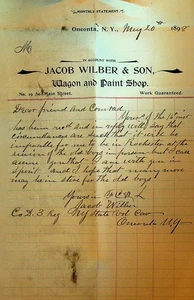 MONTHLY STATEMENT
Oneonta, N.Y., May 20th 1898
M
IN ACCOUNT WITH
JACOB WILBER & SON,
Wagon and Paint Shop.
No. 19 Main Street. Work Guaranteed.
Dear friend And Comrad
Yours of the 16 inst
has been recd and in reply will say that
circumstances are such that it will be
impossible for me to be in Rochester at the
reunion of the old boys in person but I can
assure you that I am with you in
spirit and I hope that many more
may be in store for the old boys
Yours in F. C. & L
Jacob Wilber
Co D. 3 Reg NY State Vol Cav
Oneonta NY